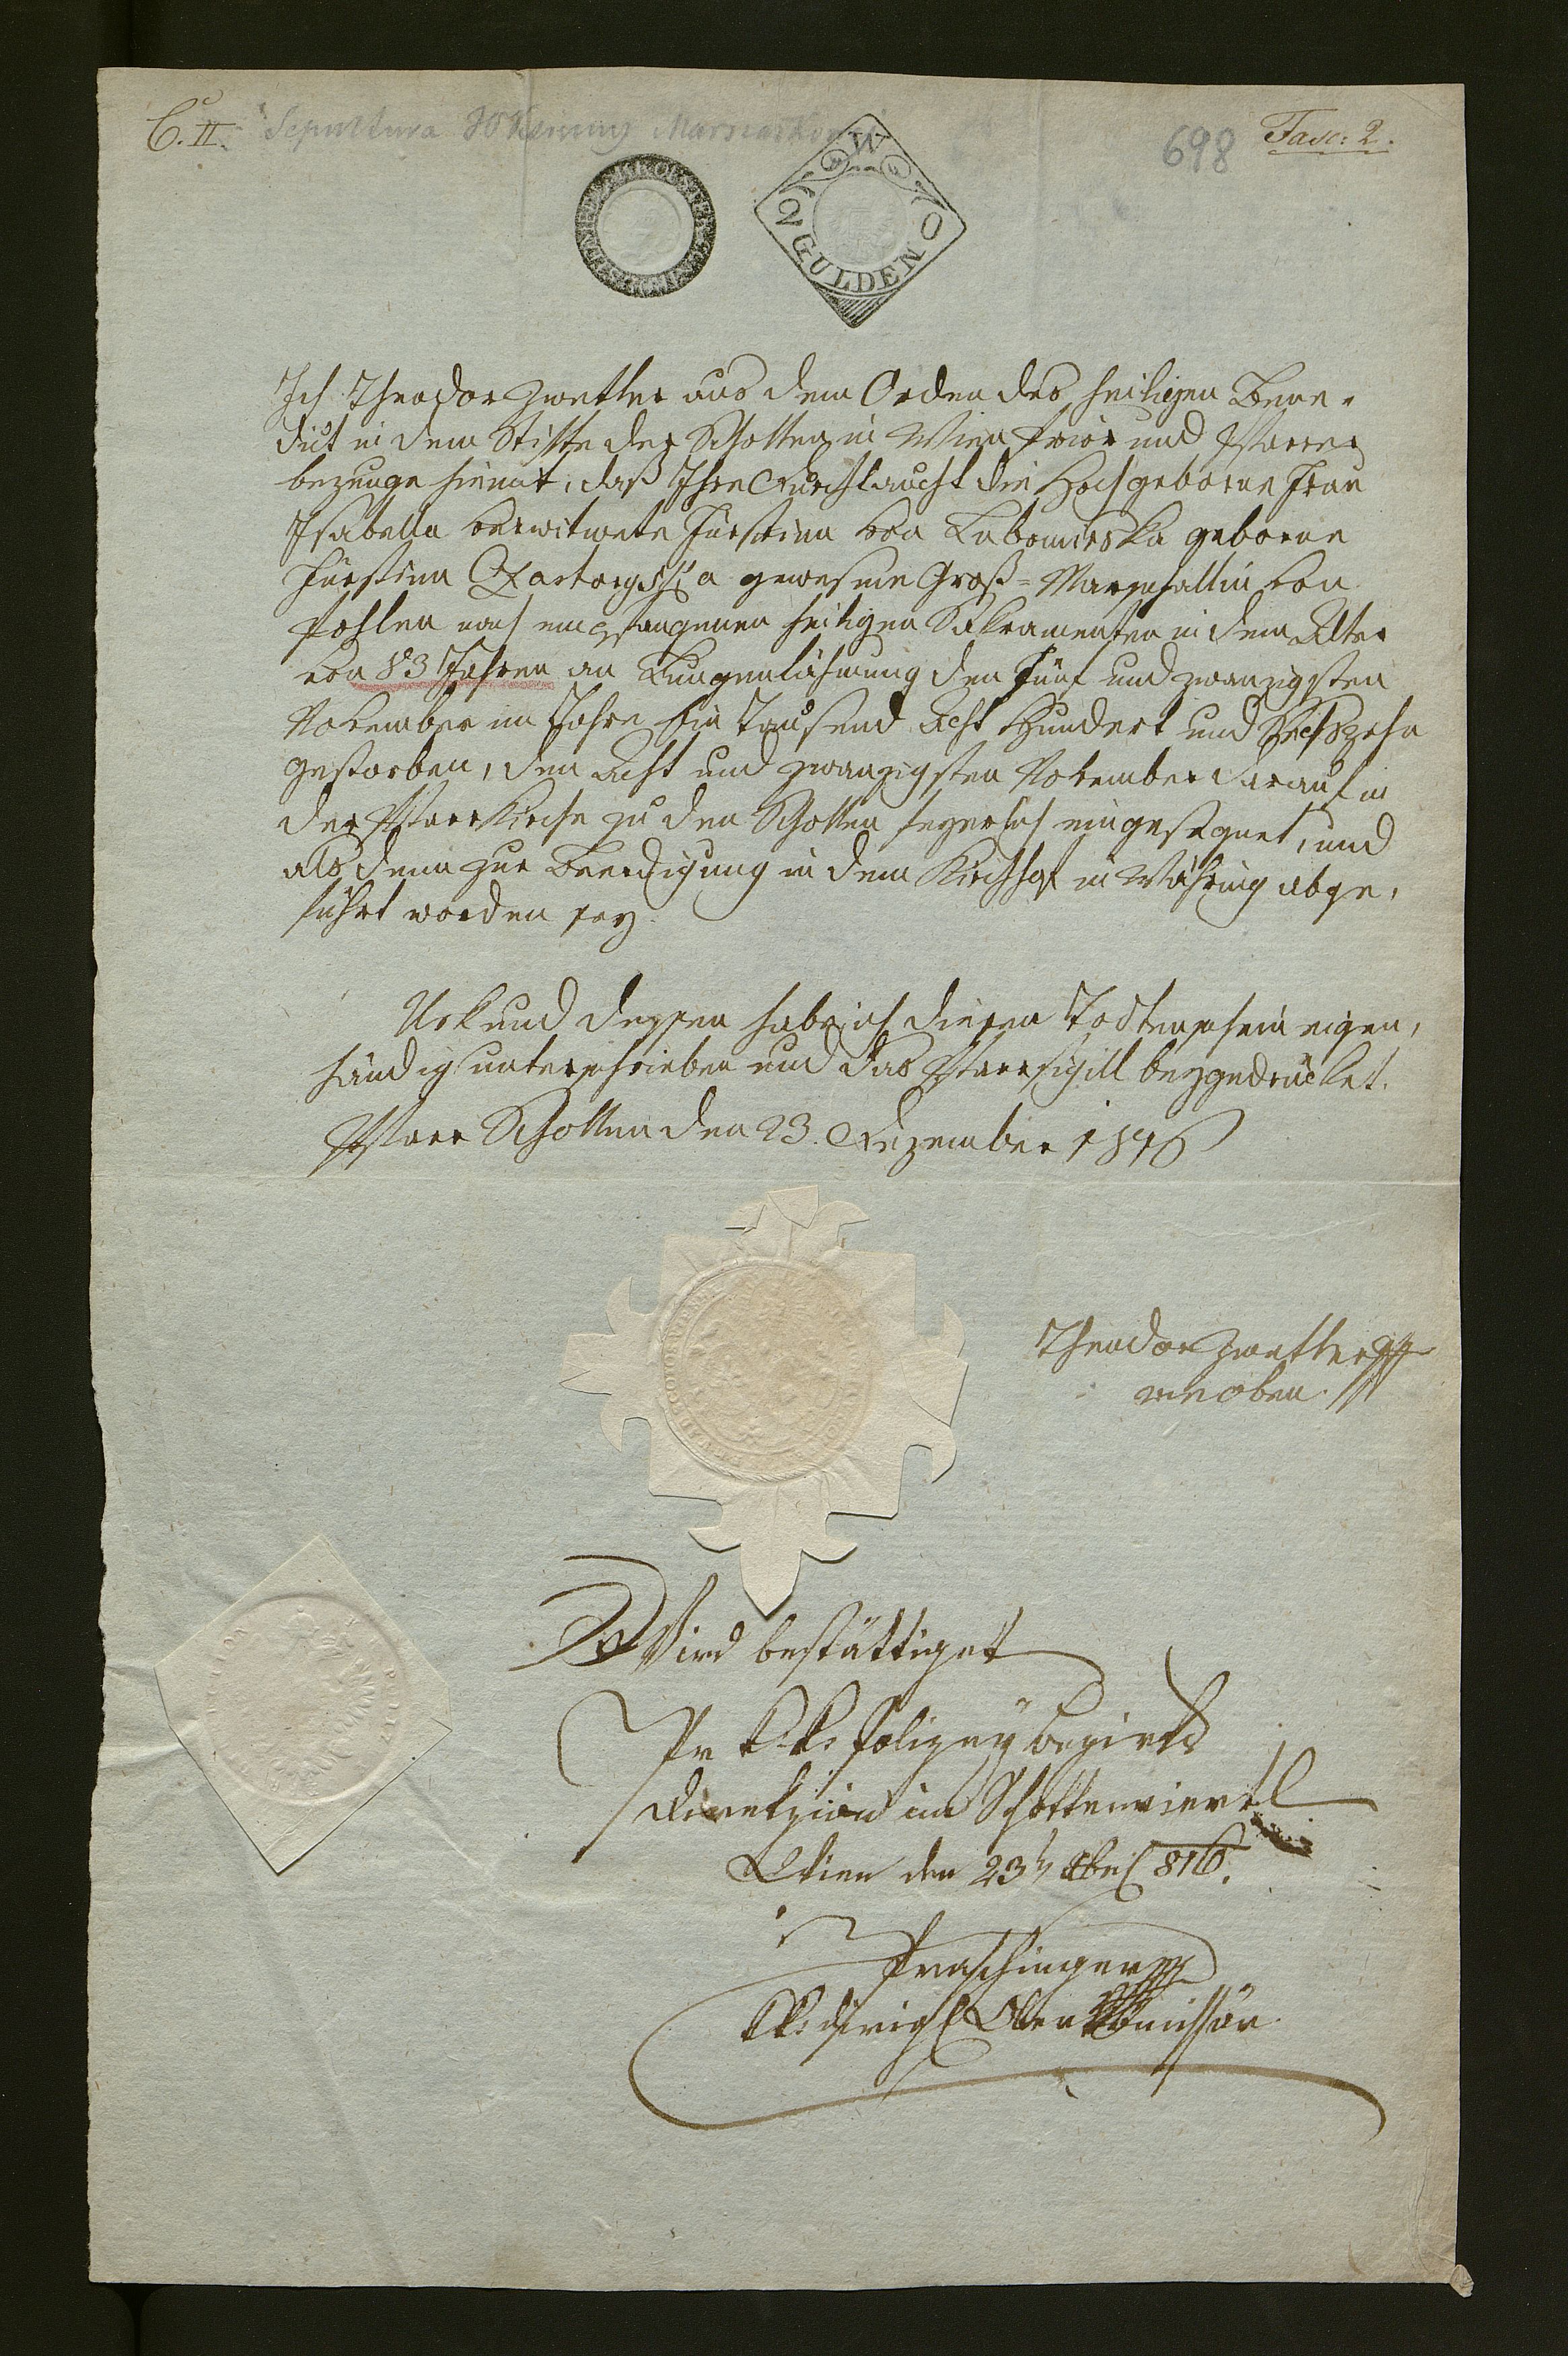 C. II. Sepultura JO Xiężny Marszałkowy
698 Fasc: 2.
W W W O
2 GULDEN
Ich Theodor Zwettler aus dem Orden des heiligen Bene-
dict in dem Stifte der Schotten in Wien Prior und Pfarrer
bezeuge hiemit, daß Ihre Durchlaucht die Hochgeborne Frau
Isabella verwitwete Fürstinn von Lubomirska geborne
Fürstinn Czartoryska gewesene Groß-Marschallin von
Pohlen nach empfangenen heiligen Sakramenten in dem Alter
von 83 Jahren an Lungenlähmung den Fünf und zwanzigsten
November im Jahre Ein Tausend Acht Hundert und Sechszehn
gestorben, den Acht und zwanzigsten November darauf in
der Pfarrkirche zu den Schotten feyerlich eingesegnet, und
als denn zur Beerdigung in dem Kirchhof in Währing abge-
führt worden sey.
Urkund dessen habe ich diesen Todtenschein eigen-
händig unterschrieben und das Pfarrsigill beygedrücket.
Pfarr Schotten den 23. Dezember 1816
Theodor Zwettler
wie oben.
Wird bestättiget
Pr k. k. Polizey Bezirks
Direkzion im Schottenviertl
Wien den 23 Xber 816.
Praschinger
kk: Ober Komissär